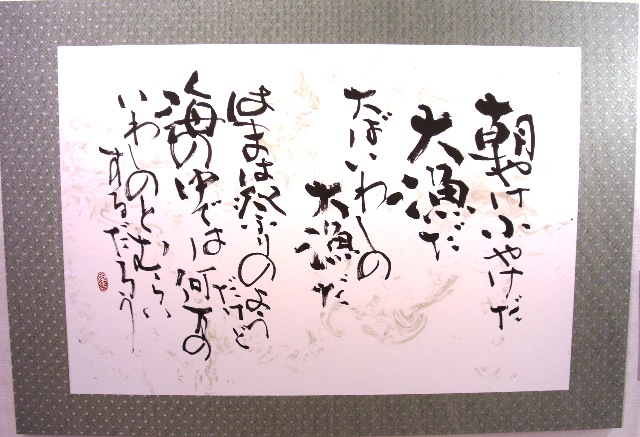 朝やけ小やけだ
大漁だ
大ばいわしの
大漁だ
はまは祭りのよう
だけど
海の中では何万の
いわしのとむらい
するだろう